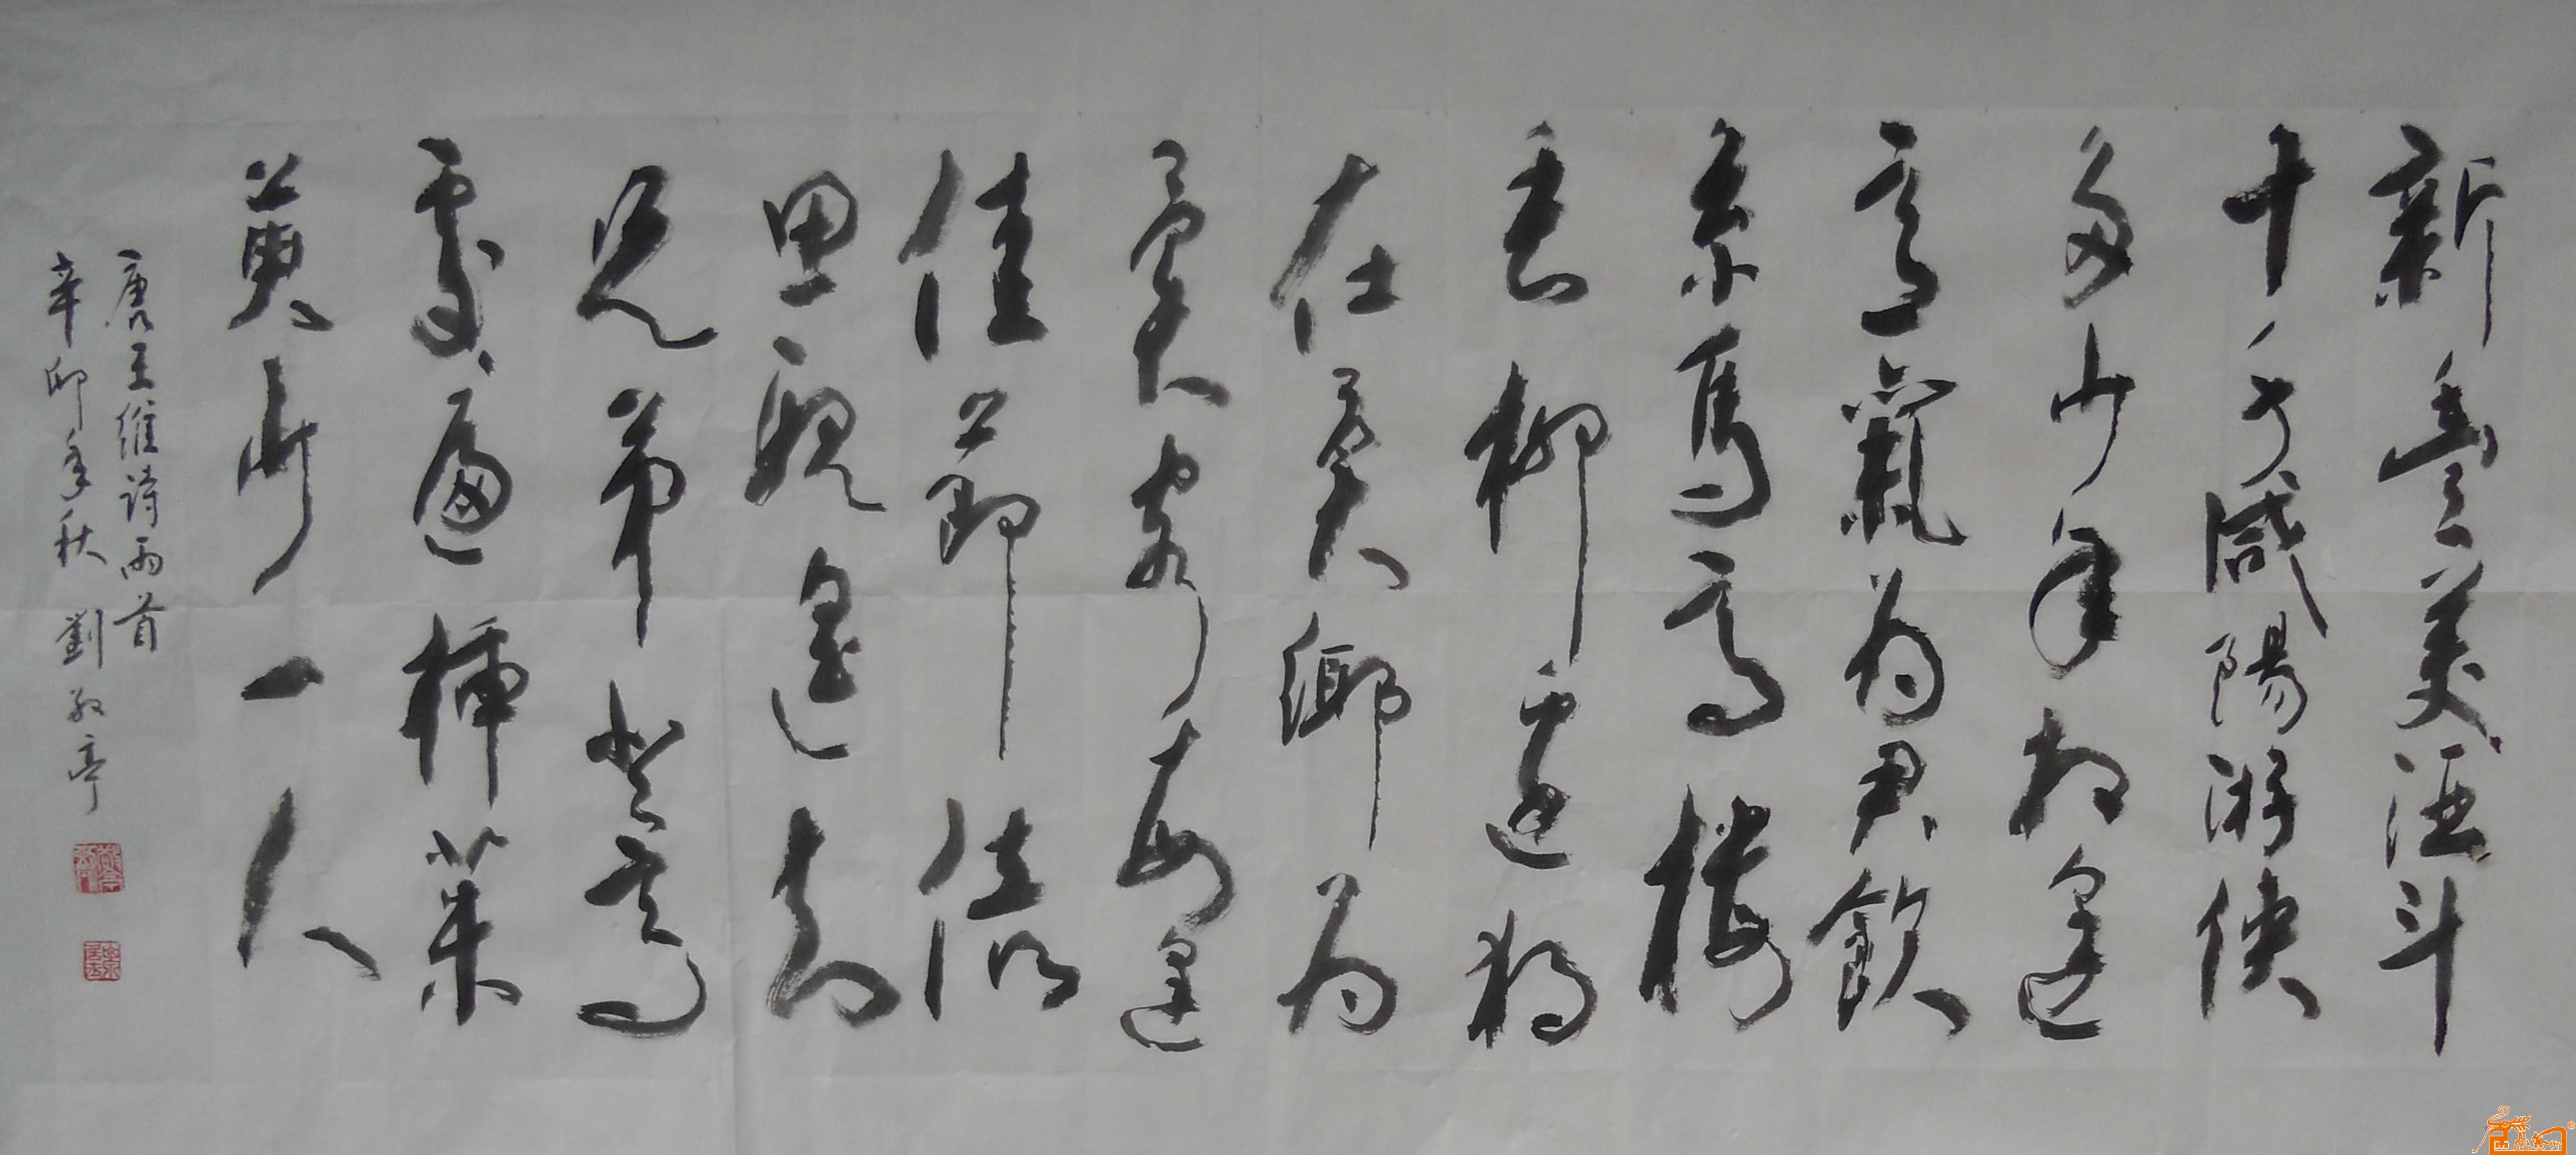 新豐美酒斗
十千咸陽游俠
多少年相逢
意氣為君飲
系馬高樓
垂柳邊獨
在異鄉為
異客每逢
佳節倍
思親遙知
兄弟登高
處遍插茱
萸少一人
唐王維詩兩首
辛卯年秋 劉亭